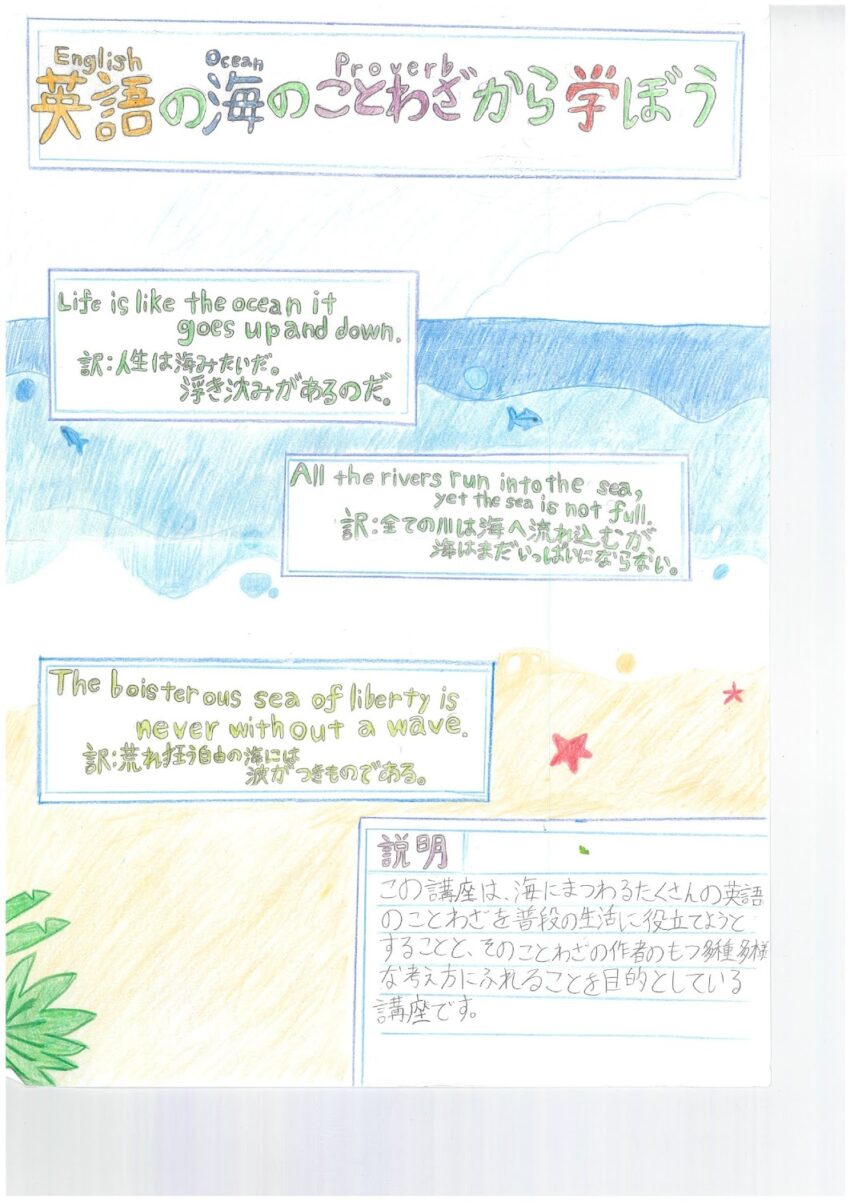 English Ocean Proverb
英語の海のことわざから学ぼう
Life is like the ocean it
goes up and down.
訳:人生は海みたいだ。
浮き沈みがあるのだ。
All the rivers run into the sea,
yet the sea is not full.
訳:全ての川は海へ流れ込むが
海はまだいっぱいにならない。
The boisterous sea of liberty is
never without a wave.
訳:荒れ狂う自由の海には
波がつきものである。
説明
この講座は、海にまつわるたくさんの英語
のことわざを普段の生活に役立てようと
することと、そのことわざの作者のもつ多種多様
な考え方にふれることを目的としている
講座です。